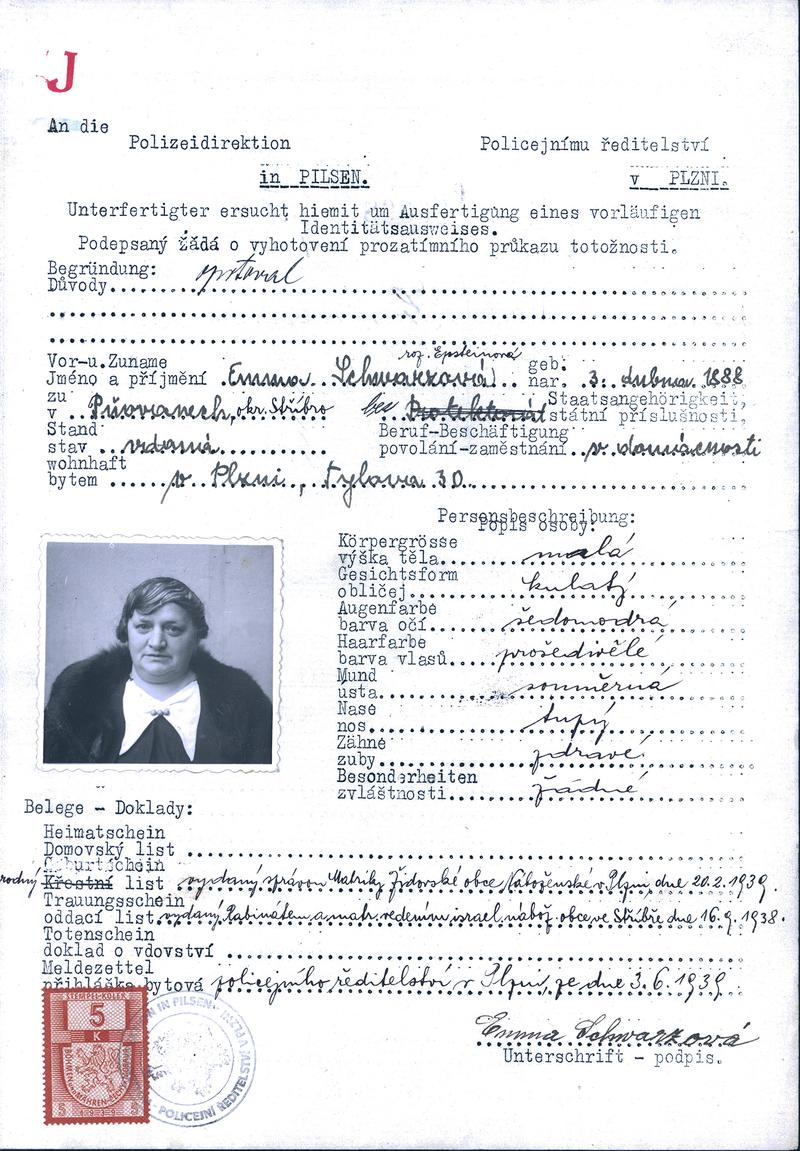 J
An die
Polizeidirektion Policejnímu ředitelství
in PILSEN. v PLZNI.
Unterfertigter ersucht hiemit um Ausfertigung eines vorläufigen
Identitätsausweises.
Podepsaný žádá o vyhotovení prozatímního průkazu totožnosti.
Begründung:
Důvody
roz. Epsteinová
Vor-u.Zuname geb:
Jméno a příjmení Emma Schwarzová nar. 3. dubna 1888
zu Staatsangehörigkeit,
v okr. Stříbro bez státní příslušnosti,
Stand Beruf-Beschäftigung
stav vdaná povolání-zaměstnání v domácnosti
wohnhaft
bytem v Plzni, Tylova 30
Personsbeschreibung:
Popis osoby:
Körpergrösse
výška těla malá
Gesichtsform
obličej kulatý
Augenfarbe
barva očí šedomodrá
Haarfarbe
barva vlasů prošedivělé
Mund
ústa souměrná
Nase
nos tupý
Zähne
zuby zdravé
Besonderheiten
zvláštnosti žádné
Belege - Doklady:
Heimatschein
Domovský list
Geburtschein
rodný Křestní list vydaný správou Matriky Židovské obce Náboženské v Plzni, dne 20.2.1939.
Trauungsschein
oddací list vydaný Rabinátem a matr. vedením israel. nábož. obce ve Stříbře dne 16.9.1938.
Totenschein
doklad o vdovství
Meldezettel
přihláška bytová policejního ředitelství v Plzni, ze dne 3.6.1939
Emma Schwarzová
Unterschrift - podpis.
5
K
IN PILSEN
POLICEJNÍ ŘEDITELSTVÍ